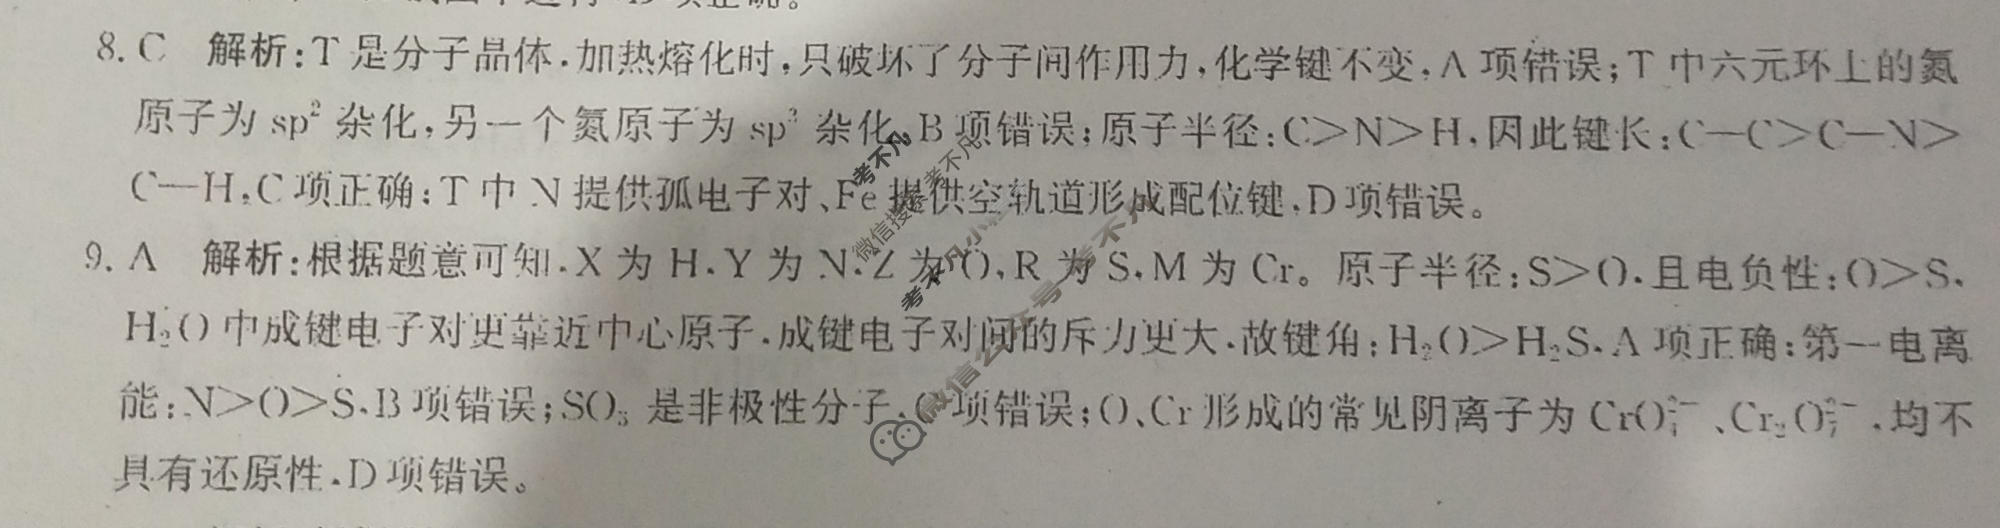 8. C 解析:T 是分子晶体,加热熔化时,只破坏了分子间作用力,化学键不变,A 项错误;T 中六元环上的氮
原子为 sp² 杂化,另一个氮原子为 sp³ 杂化,B 项错误;原子半径:C>N>H,因此键长:C—C>C—N>
C—H,C 项正确;T 中 N 提供孤电子对、Fe 提供空轨道形成配位键,D 项错误。
9. A 解析:根据题意可知,X 为 H,Y 为 N,Z 为 O,R 为 S,M 为 Cr。原子半径:S>O,且电负性:O>S,
H₂O 中成键电子对更靠近中心原子,成键电子对间的斥力更大,故键角:H₂O>H₂S,A 项正确;第一电离
能:N>O>S,B 项错误;SO₃ 是非极性分子,C 项错误;O、Cr 形成的常见阴离子为 CrO₄²⁻、Cr₂O₇²⁻,均不
具有还原性,D 项错误。